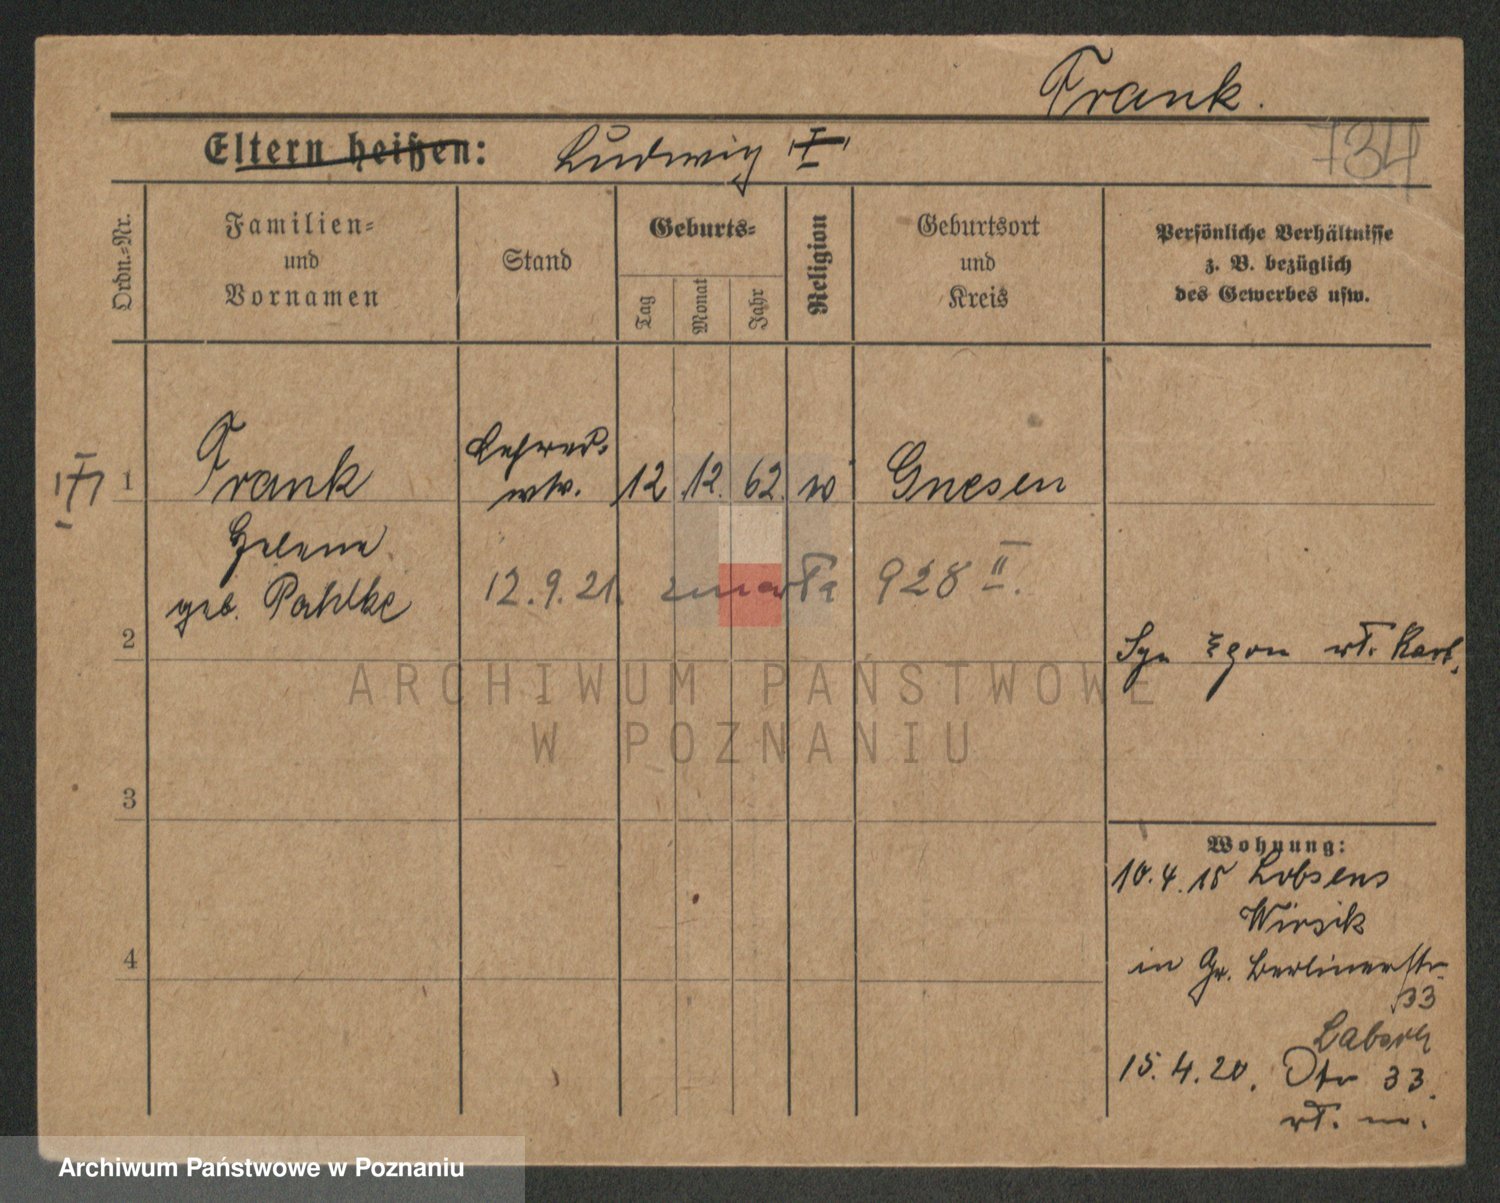 Frank.
734
Eltern heißen: Ludwig
Ordn.-Nr.
Familien-
und
Vornamen
Stand
Geburts-
Tag
Monat
Jahr
Religion
Geburtsort
und
Kreis
Persönliche Verhältnisse
z. B. bezüglich
des Gewerbes usw.
1 Frank Lehrer- wtw. 12 12. 62. Gnesen
Helene
geb. Pahlke
12.9.21. zmarła 928 II.
2
Syn Egon
3
4
Wohnung:
10.4.15 Lobsens
Wirsik
in Gr. Berlinerstr.
33
15.4.20. Dtr 33.
ARCHIWUM PAŃSTWOWE
W POZNANIU
Archiwum Państwowe w Poznaniu